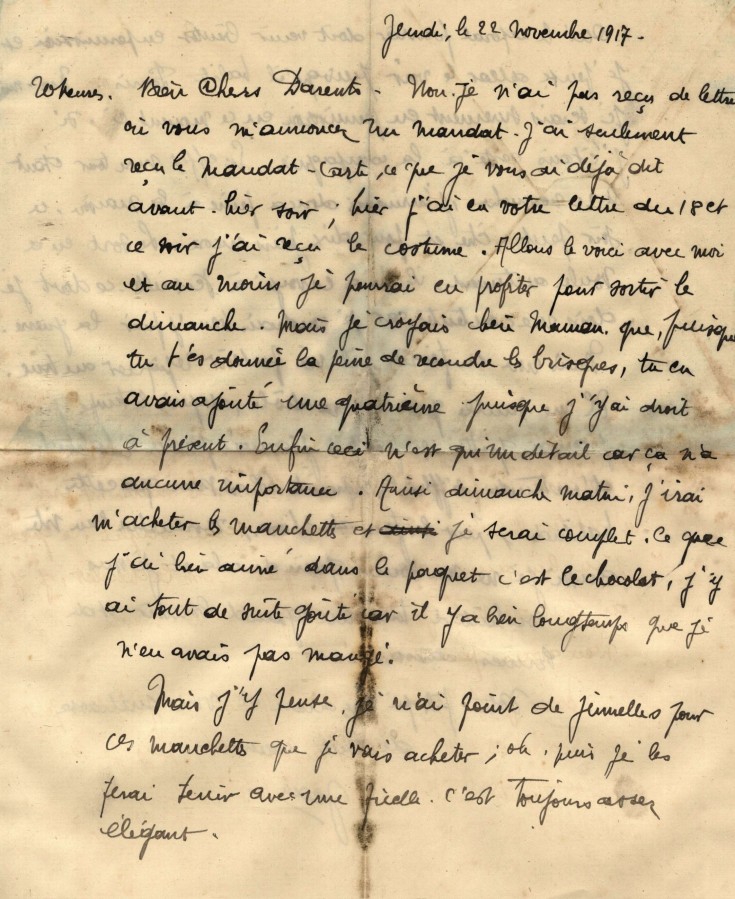 Jeudi, le 22 novembre 1917.
20 heures. Bien Chers Parents - Non. je n'ai pas reçu de lettre
où vous m'annoncez un mandat. j'ai seulement
reçu le mandat-carte, ce que je vous ai déjà dit
avant-hier soir ; hier j'ai eu votre lettre du 18 et
ce soir j'ai reçu le costume. Allons le voici avec moi
et au moins je pourrai en profiter pour sortir le
dimanche. Mais je croyais chère Maman, que, puisque
tu t'es donnée la peine de recoudre les brisques, tu en
avais ajouté une quatrième puisque j'y ai droit
à présent. Enfin ceci n'est qu'un détail car ça n'a
aucune importance. Ainsi dimanche matin, j'irai
m'acheter les manchettes et ainsi je serai complet. Ce que
j'ai bien aimé dans le paquet c'est le chocolat, j'y
ai tout de suite goûté car il y a bien longtemps que je
n'en avais pas mangé.
Mais j'y pense, je n'ai point de jumelles pour
ces manchettes que je vais acheter ; oh. puis je les
ferai tenir avec une ficelle. c'est toujours assez
élégant.